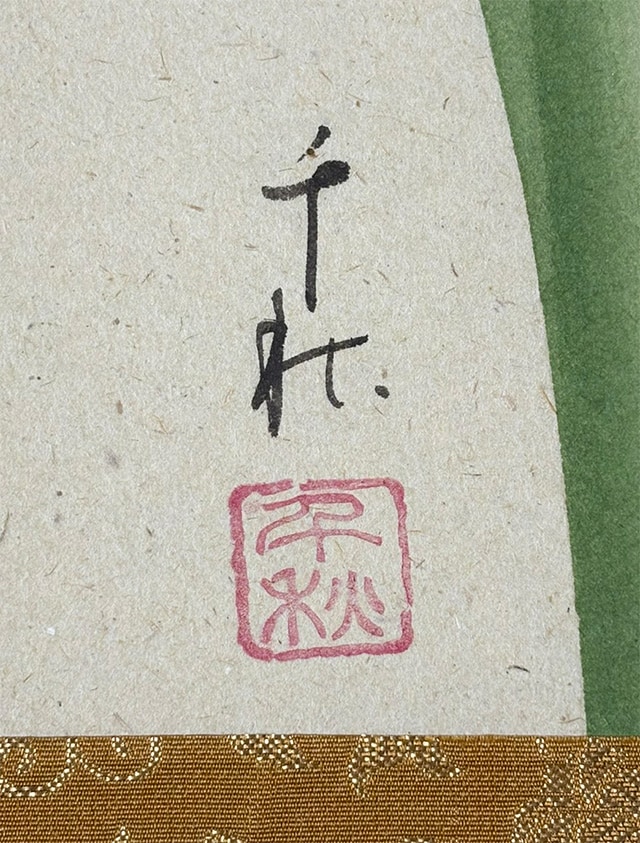 千秋
千秋